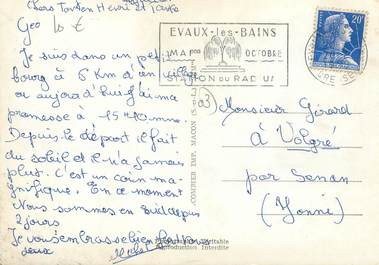 chers Tonton Henri et
Geo 10 €
Je suis dans un petit
bourg à 5 Km d'en ville
ou aujourd'hui j'ai ma
promesse à 15 H 40 mn.
Depuis le départ il fait
du soleil et il n'a jamais
plut. C'est un coin ma-
gnifique. En ce moment
Nous sommes en Suil depuis
2 jours
Je vous embrasse bien
deux
EVAUX-les-BAINS
1 MAI OCTOBRE
STATION DU RADIUM
20F
(03)
COMBIER IMP. MACON (S.-et-L.)
Photographie Véritable
Reproduction Interdite
Monsieur Gérard
à Volgré
par Senan
(Yonne)